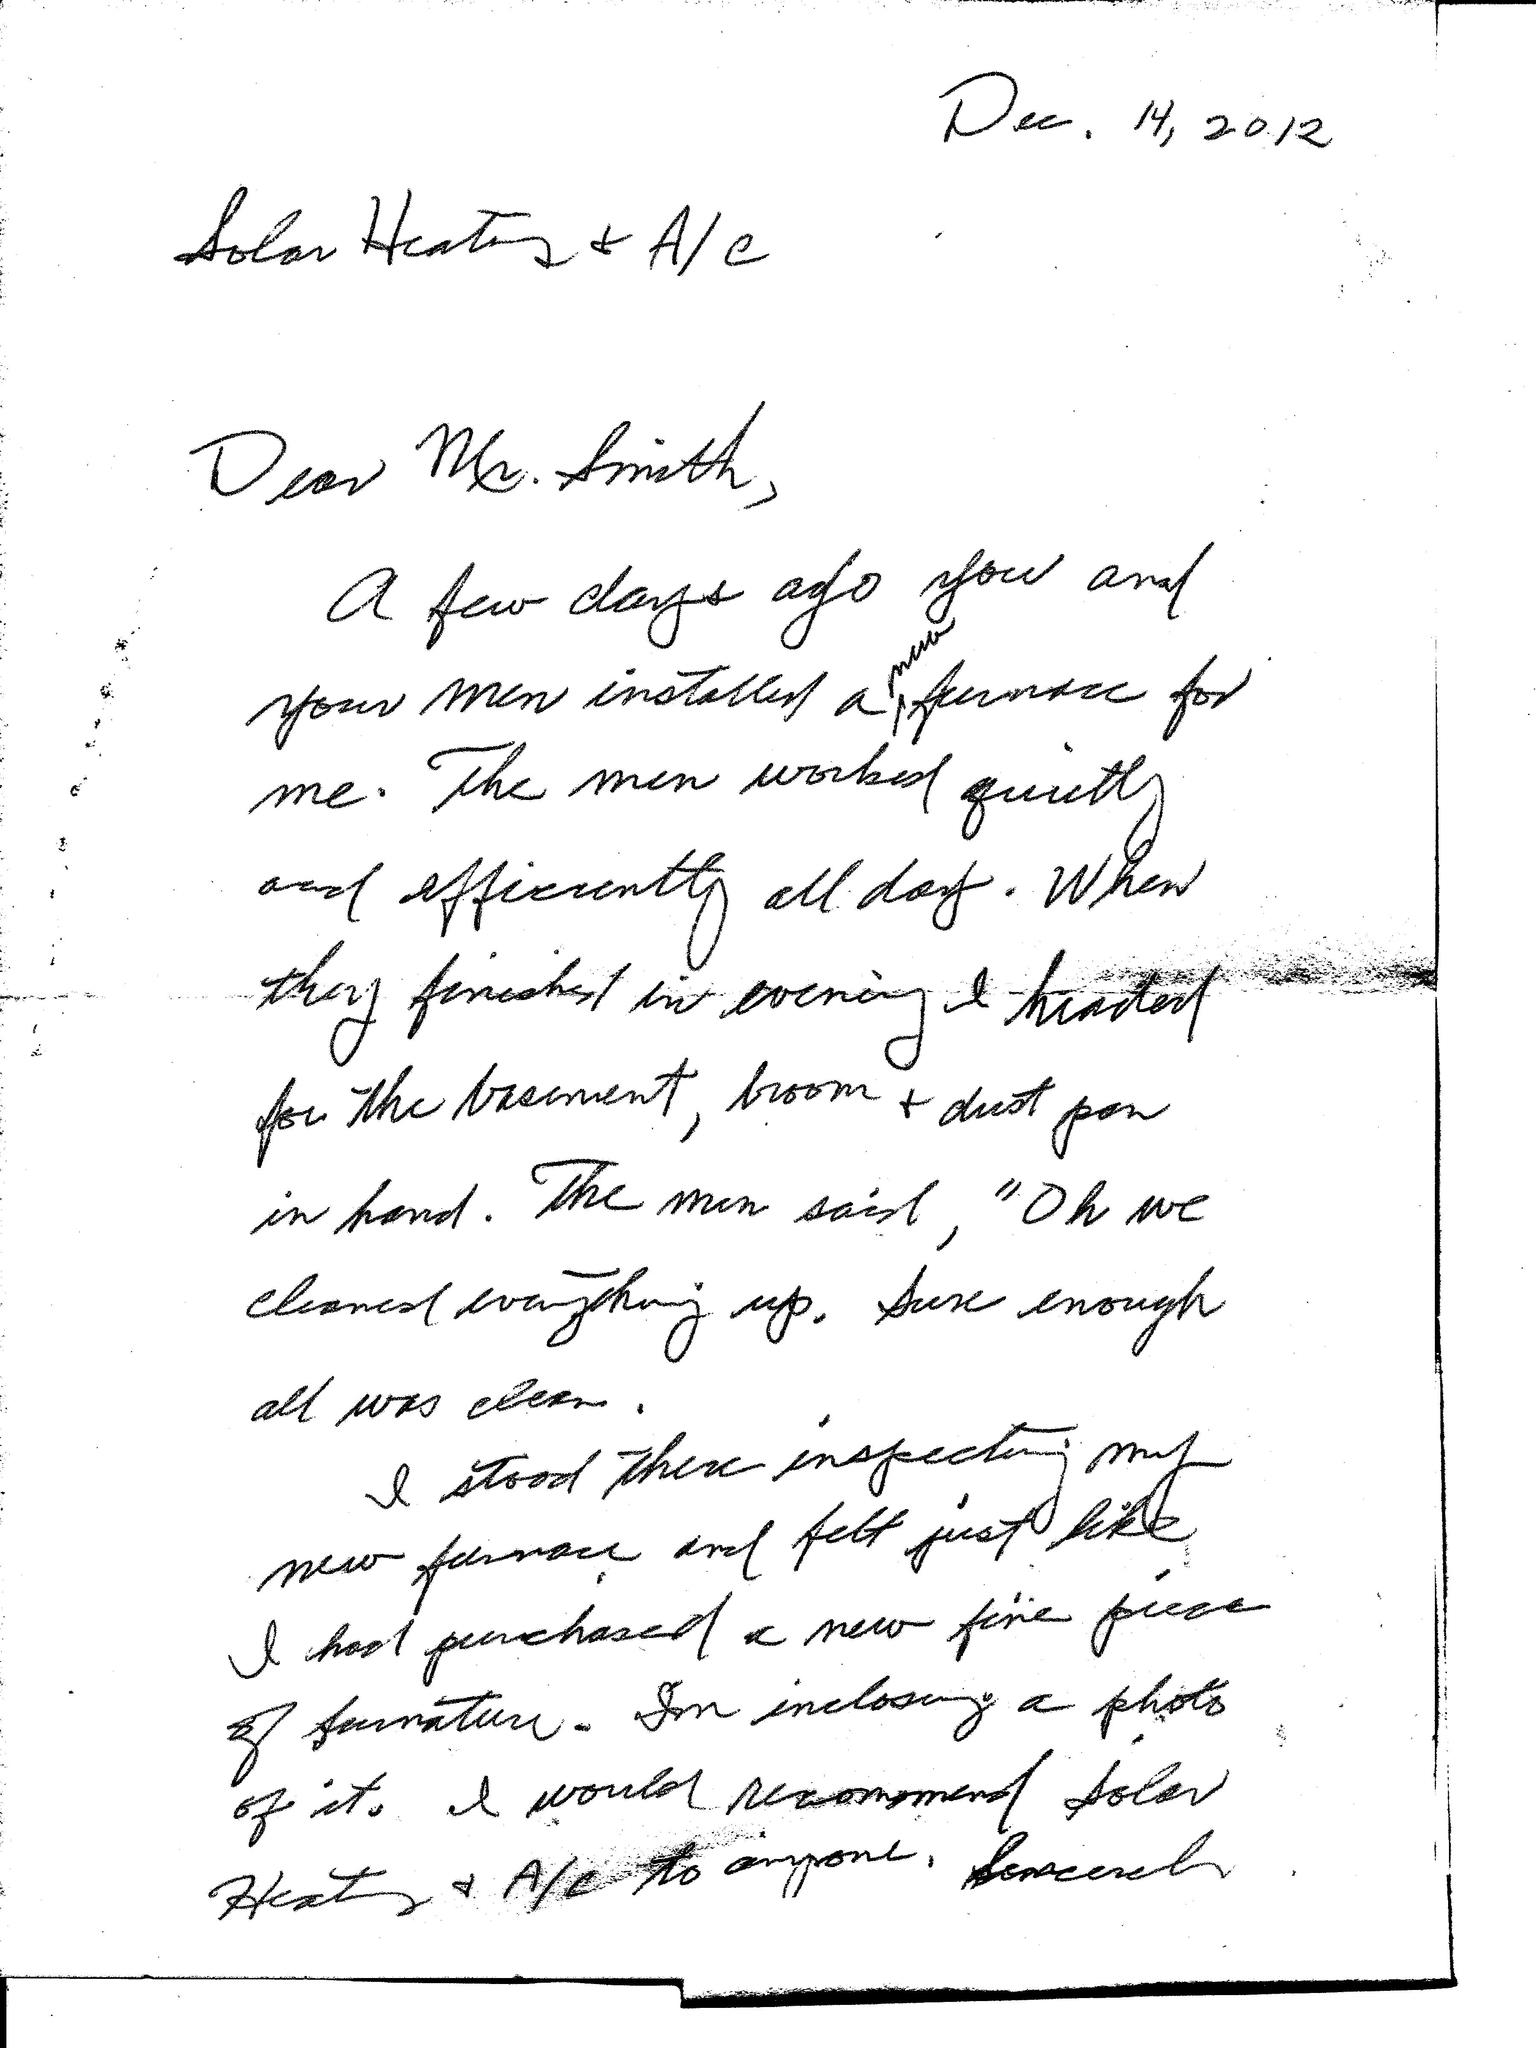 Dec. 14, 2012
Solar Heating & A/C
Dear Mr. Smith,
A few days ago you and
your men installed a new furnace for
me. The men worked quietly
and efficiently all day. When
they finished in evening I headed
for the basement, broom & dust pan
in hand. The men said, "Oh we
cleaned everything up. Sure enough
all was clean.
I stood there inspecting my
new furnace and felt just like
I had purchased a new fine piece
of furnature. I'm inclosing a photo
of it. I would recommend Solar
Heating & A/C to anyone. Sincerely